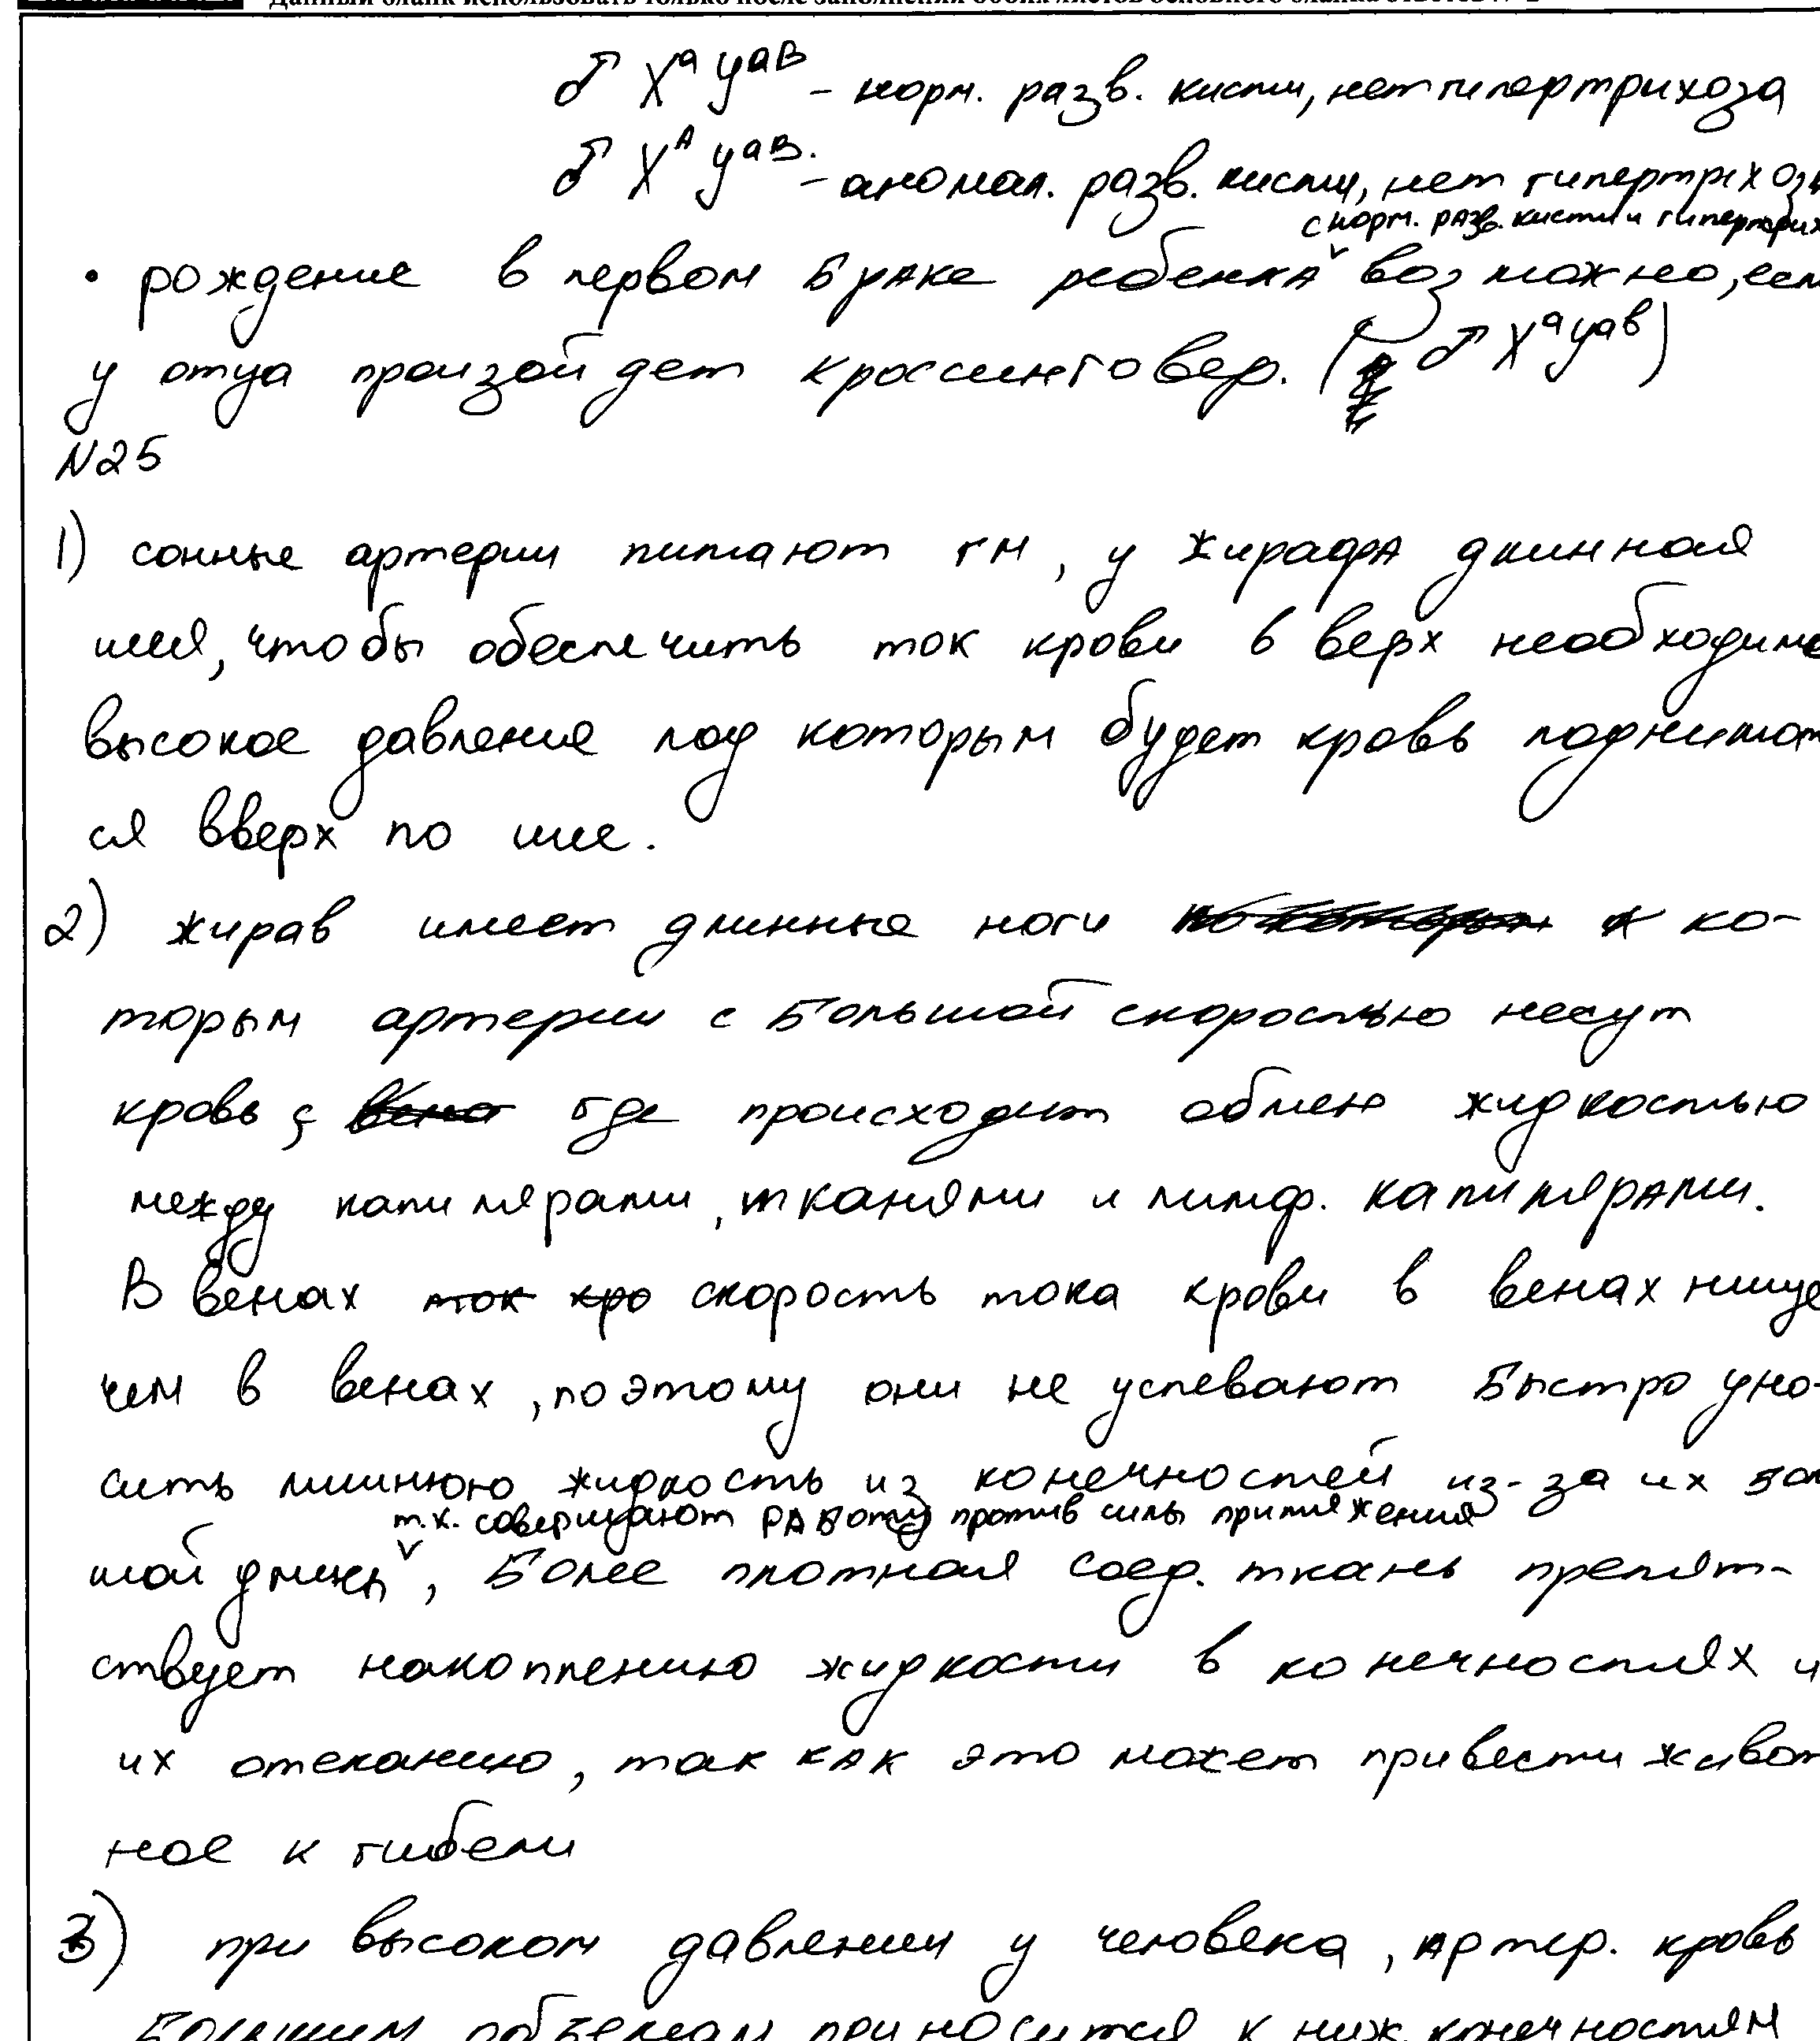 Данный бланк использовать только после заполнения обоих листов основного бланка ответов № 2
♂ XᵃYᵃᴮ - норм. разв. кисти, нет гипертрихоза
♂ XᴬYᵃᴮ. - аномал. разв. кисти, нет гипертрихоза
с норм. разв. кисти и гипертрих
• рождение в первом браке ребенка возможно, если
у отца произойдет кроссинговер. (♂ XᵃYᵃᵇ)
N25
1) сонные артерии питают гм, у жирафа длинная
шея, чтобы обеспечить ток крови в верх необходимо
высокое давление под которым будет кровь поднимат
ся вверх по шее.
2) жирав имеет длинные ноги к ко-
торым артерии с большой скоростью несут
кровь, где происходит обмен жидкостью
между капилярами, тканями и лимф. капилярами.
В венах скорость тока крови в венах ниже
чем в венах, поэтому они не успевают быстро уно-
сить лишнюю жидкость из конечностей из-за их бол
т.к. совершают работу против силы притяжения
шой длины, более плотная соед. ткань препят-
ствует накоплению жидкости в конечностях и
их отеканию, так как это может привести живот
ное к гибели
3) при высоком давлении у человека, артер. кровь
большим объемам приносится к ниж. конечностям